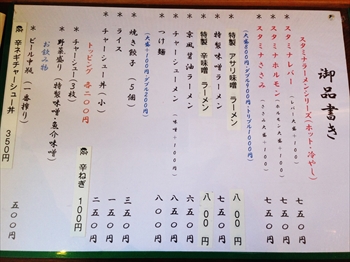 御品書き
スタミナラーメンシリーズ(ホット・冷やし)
スタミナレバー 七五〇円
スタミナホルモン 七五〇円
スタミナささみ 七五〇円
(大盛+100円 ダブル200円 トリプル1000円)
特製 アサリ味噌 ラーメン 八〇〇円
特製味噌ラーメン 七五〇円
特製 辛味噌 ラーメン 八〇〇円
京風醤油ラーメン 六五〇円
チャーシューメン 八〇〇円
つけ麺 八〇〇円
(大盛+100円 ダブル200円)
焼き餃子(5個) 三五〇円
ライス 一五〇円
チャーシュー丼(小) 二五〇円
トッピング各二〇〇円
チャーシュー(3枚)
辛ねぎ 100円
野菜盛り(特製味噌・魚介味噌)
お飲み物
ビール中瓶(一番搾り) 五〇〇円
辛ネギチャーシュー丼 350円